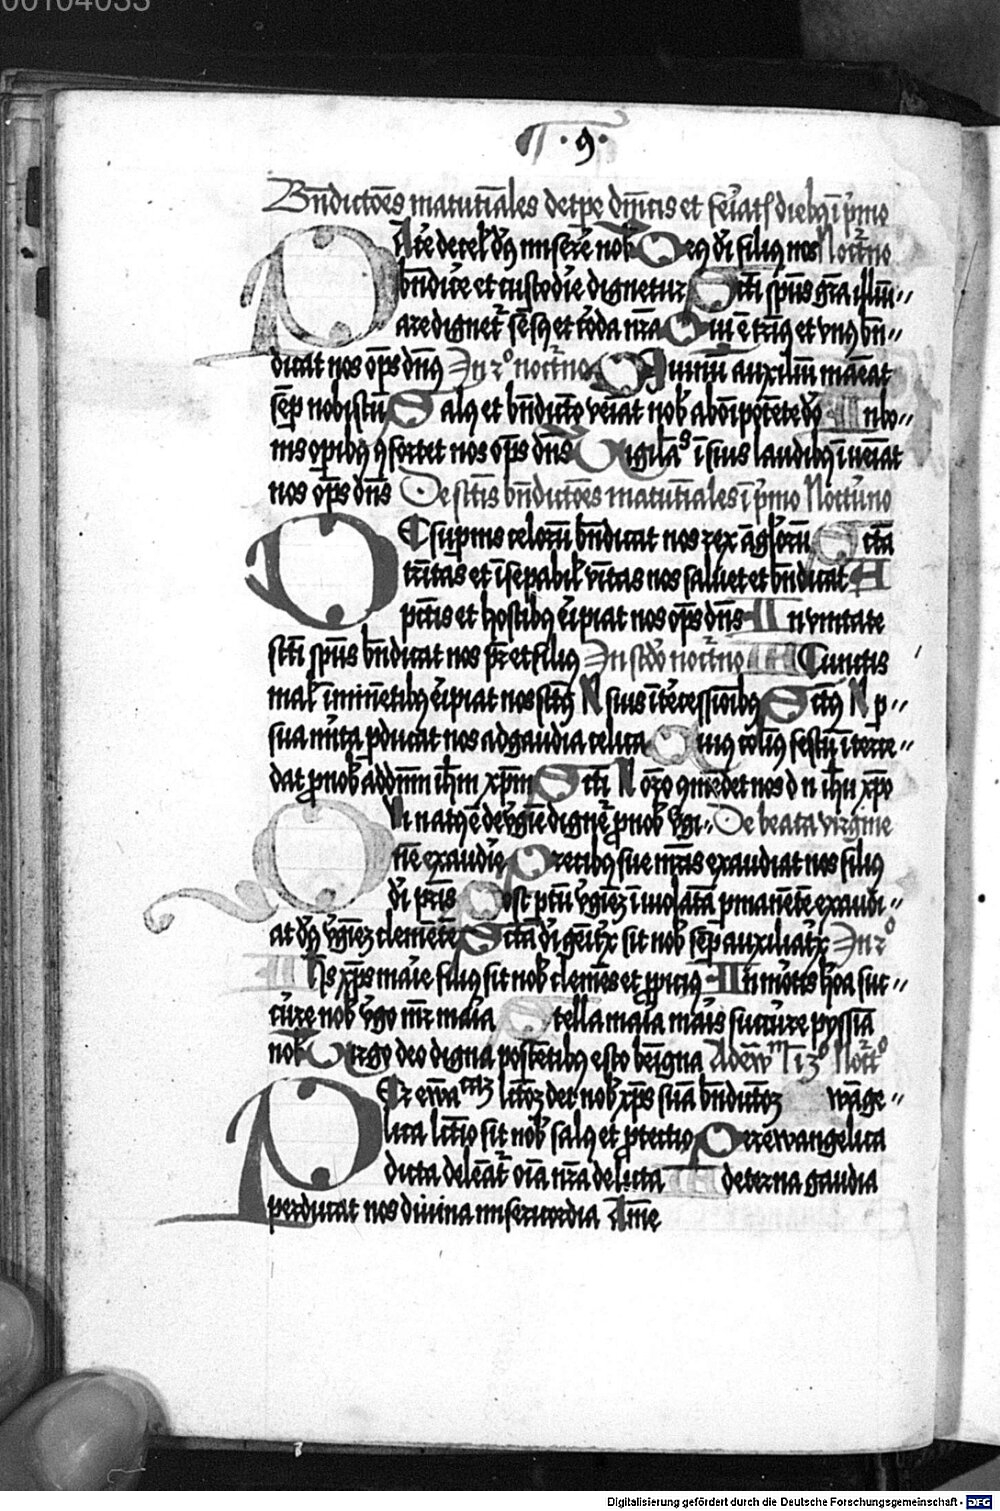 00104033
¶ · 9 ·
Bn̄dictōes matuti̅ales de tp̄e dn̄icis et fe͛iat diebꝫ ī p͛mo
PAt͛ de cel dꝰ mise͛re nob Deꝰ di͛ filiꝰ nos Noct͛no
bn̄dic͛e et custodi͛e dignetur Scti sp̄us gr̄a illu̅i˗
are dignet͛ se̅sꝰ et co͛da nr̄a Qui ē t͛nꝰ et vnꝰ bn̄˗
dicat nos op̄s dn̄s In 2º noct͛no Diuinu̅ auxiliu̅ ma̅eat
sēp nobiscu̅ Salꝰ et bn̄dictō ve͛iat nob ab o̅ipote̅te dō In bo˗
nis op͛ibꝫ ꝯfortet nos op̄s dn̄s Vigila̅s ī suis laudibꝫ īueīat
nos op̄s dn̄s De sctīs bn̄dictōes matuti̅ales ī p͛mo Noctu͛no
DE sup͛nis celoru̅ bn̄dicat nos rex a̅gloru̅ Sctā
t͛nitas et īsepabil vn̄itas nos saluet et bn̄dicat A
pctīs et hostibꝫ e͛ipiat nos op̄s dn̄s In vnitate
sctī sp̄us bn̄dicat nos pr̄ et filiꝰ In scd̄o noct͛no A Cunctis
mal īmine̅tibꝫ e͛ipiat nos sctꝰ N suis īt͛cessionibꝫ Sctꝰ N p˗
sua me͛ita pducat nos ad gaudia celica Cuiꝰ colimꝰ festu̅ īterce˗
dat p nob ad dn̄m ih̄m xp̄m Sctī N or̄o ꝯme̅det nos d n ih̄u xp̄o
Qui natꝰ ē de v͛gīe dignet͛ p nob v͛gi De beata virgine
One exaudi͛e Precibꝫ sue mr̄is exaudiat nos filiꝰ
di͛ pr̄is Post ptu̅ v͛gīez īuiolata̅ pmane̅te̅ exaudi˗
at dꝰ v͛gīez cleme̅te̅ Sctā di͛ ge͛it͛x sit nob sēp auxiliat͛x In 2º
IHs xp̄s ma͛ie filiꝰ sit nob cleme̅s et ppiciꝰ In mo͛tis ho͛a suc˗
cu͛re nob v͛go mr̄ ma͛ia Stella ma͛ia ma͛is succu͛re pyssi̅a
nob Virgo deo digna posce̅tibꝫ esto be̅igna Ad ew̅ⁿ ī 3º Noctº
PEr ewa̅ lctōꝫ det nob xp̄s sua̅ bn̄dictōꝫ Ewa̅ge˗
lica lctīo sit nob salꝰ et ptectio Per ewangelica
dicta delea̅t͛ oi̅a nr̄a delicta Ad eterna gaudia
perducat nos diuina misericordia Ame̅
Digitalisierung gefördert durch die Deutsche Forschungsgemeinschaft - DFG